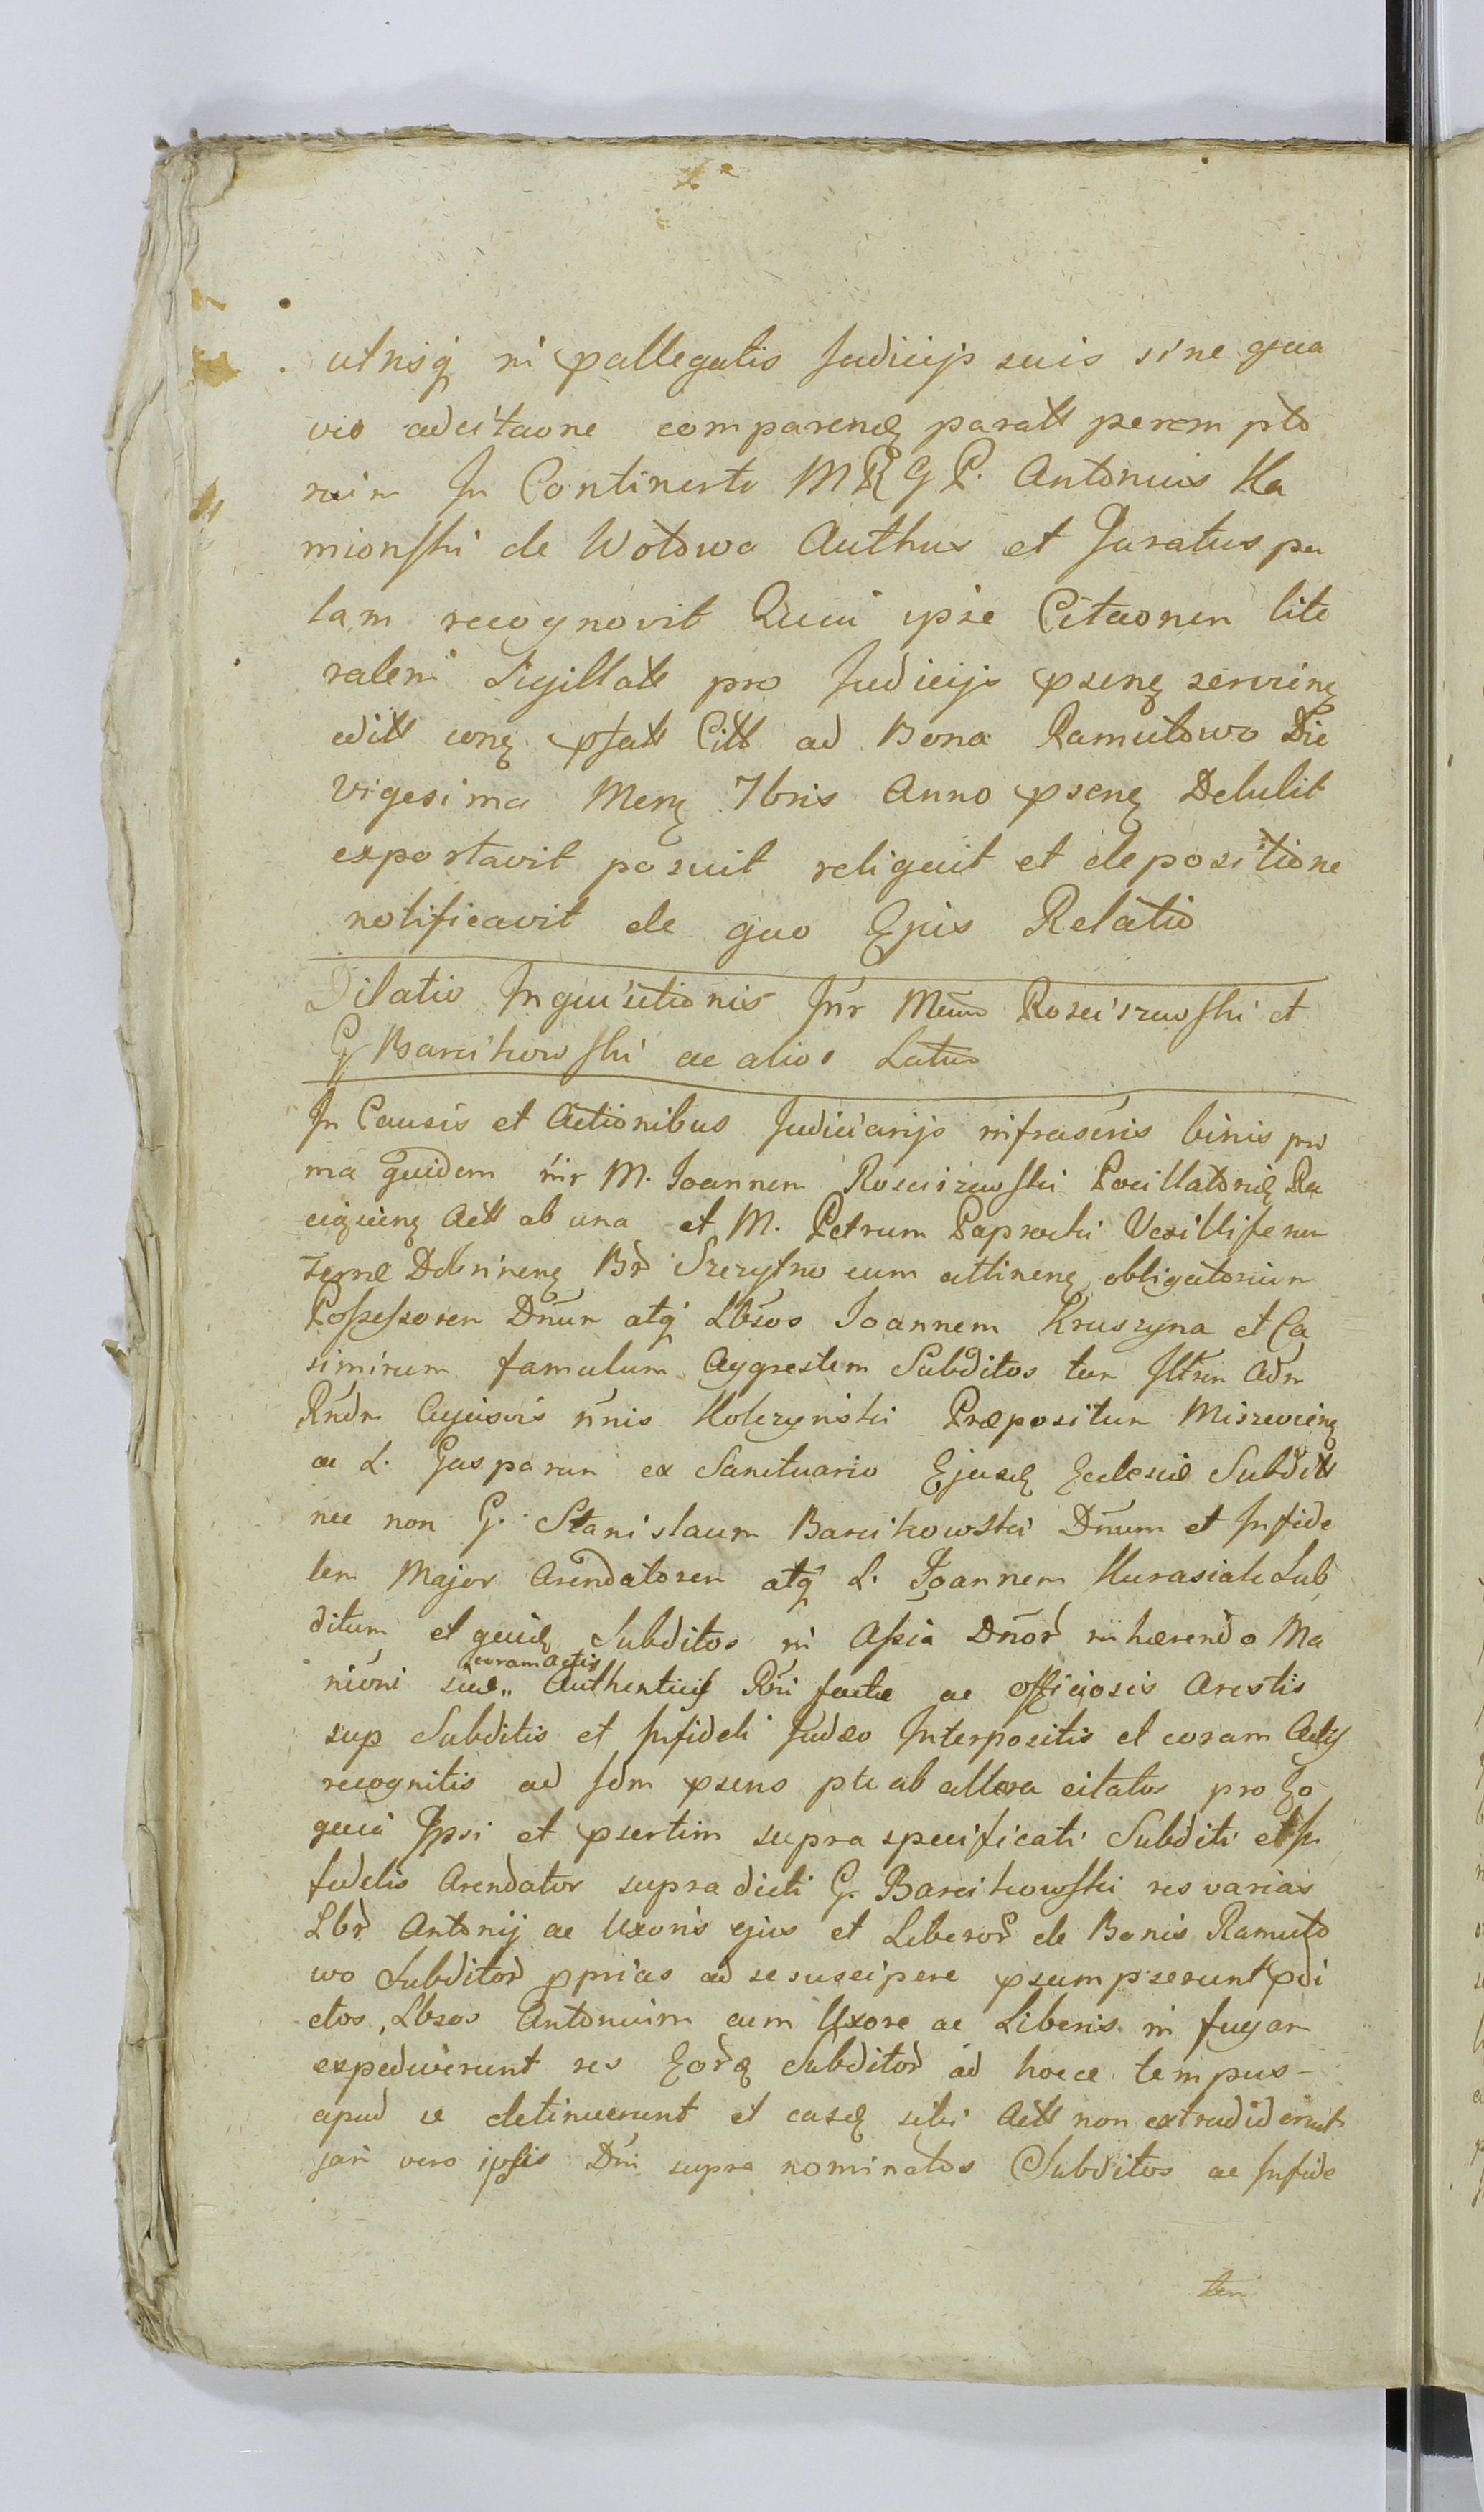 utnsq́ in pallegatis Judicijs suis sine qua
vis adcitaone comparenę paratt perem pto
riim In Continenti MRGP. Antonius Ka
mionski de Wolowa Authus et Juratus pa
lam recognovit Quia ipse Citaonem lite
ralem Sigillatt pro Judicijs psenę servienę
editt conę pfatt Citt ad Bona Ramutowo Die
vigesima Menę 7bris Anno psenę Detulit
exportavit posuit reliquit et depositione
notificavit de quo Ejus Relatio
Dilatio Inquisitionis Inr Meum Rosciszewski et
G Barcikowski ac alios Latus
In Causis et Actionibus Judiciarijs infrascris binis pri
ma quidem inr M. Joannem Rosciszewski Pocillatorię Ra
ciązienę Actt ab una et M. Petrum Paprocki Vexilliferum
Terræ Dobrinenę Br̃ Szczytno cum attinenę obligatorium
Possessorem Dñum atq́ Lbsos Joannem Kruszyna et Ca
simirum famulum Aggrestem Subditos tum Illrem Adm
Rndm Cujusvis ñnis Kolczynski Præpositum Miszewienę
ac L. Gasparum ex Sanctuario Ejusdę Ecclesiæ Subditt
nec non G. Stanislaum Barcikowski Dñum et Infide
lem Major Arendatorem atq́ L. Joannem Kurasiak Sub
ditum et quidę Subditos in Assia Dñor̃ inhærendo Ma
niõni suæ „ coram Actis Authenticis Rñi factæ ac officiosis Arestis
sup Subditis et Infideli Judæo Interpositis et coram Actis
recognitis ad Idm psens pte ab altera citatos pro Eo
quia Ipsi et psertim supra specificati Subditi et In
fidelis Arendator supra dicti G. Barcikowski res varias
Lbr̃ Antonij ac Uxoris ejus et Liberor̃ de Bonis Ramuto
wo Subditor̃ pprias ad se suscipere psumpserunt pdi
ctos, Lbsos Antonium cum Uxore ac Liberis in fugam
expediverunt res Eordę Subditor̃ ad hocce tempus -
apud se detinuerunt et easdę sibi Actt non extradiderunt
jam vero ipsis Dñi supra nominatos Subditos ac Infide
lem